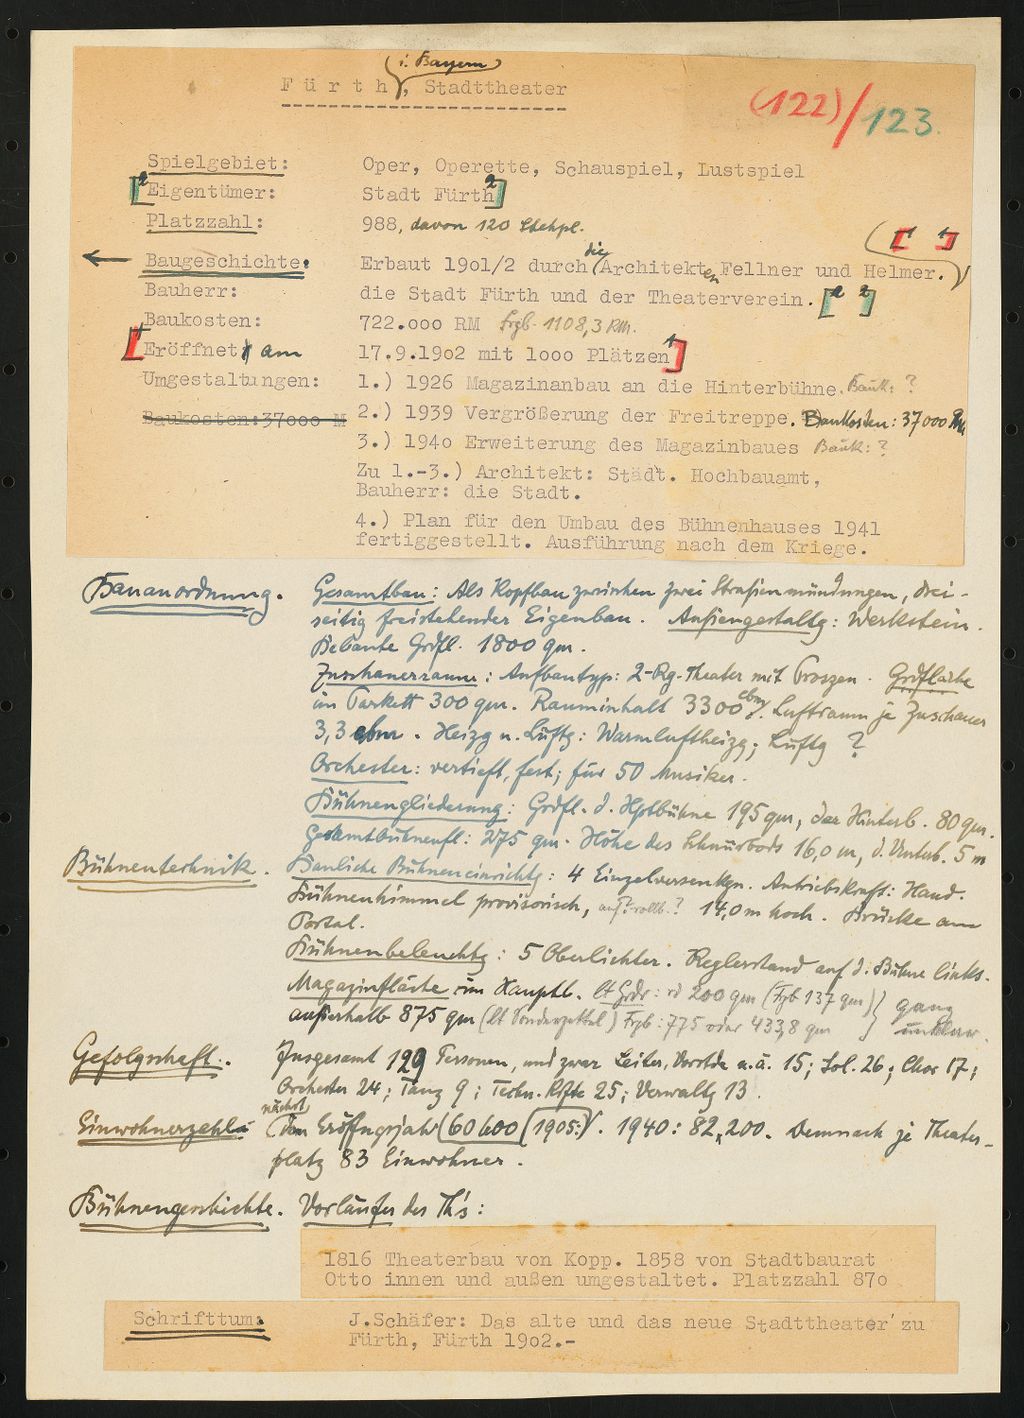 (i. Bayern)
Fürth, Stadttheater
(122)/123.
Spielgebiet: Oper, Operette, Schauspiel, Lustspiel
[2 Eigentümer: Stadt Fürth 2]
Platzzahl: 988, davon 120 Stehpl.
[1 1]
← Baugeschichte. Erbaut 19o1/2 durch (die Architekten Fellner und Helmer.)
Bauherr: die Stadt Fürth und der Theaterverein. [2 2]
Baukosten: 722.ooo RM Frgb. 1108,3 RM.
[1 Eröffnet am 17.9.19o2 mit 1ooo Plätzen 1]
Umgestaltungen: 1.) 1926 Magazinanbau an die Hinterbühne. Bauk: ?
Baukosten:37ooo M 2.) 1939 Vergrößerung der Freitreppe. Baukosten: 37000 RM
3.) 194o Erweiterung des Magazinbaues Bauk: ?
Zu 1.-3.) Architekt: Städt. Hochbauamt,
Bauherr: die Stadt.
4.) Plan für den Umbau des Bühnenhauses 1941
fertiggestellt. Ausführung nach dem Kriege.
Bauanordnung. Gesamtbau: Als Kopfbau zwischen zwei Straßenmündungen, drei-
seitig freistehender Eigenbau. Außengestaltg: Werkstein.
Bebaute Grdfl. 1800 qm.
Zuschauerraum: Aufbautyp: 2-Rg-Theater mit Proszen. Grdfläche
im Parkett 300 qm. Rauminhalt 3300 cbm. Luftraum je Zuschauer
3,3 cbm. Heizg u. Lüftg: Warmluftheizg; Lüftg ?
Orchester: vertieft, fest; für 50 Musiker.
Bühnengliederung: Grdfl. d. Hptbühne 195 qm, der Hinterb. 80 qm.
Gesamtbühnenfl: 275 qm. Höhe des Schnürbods 16,0 m, d. Unterb. 5 m
Bühnentechnik. Bauliche Bühneneinrichtg: 4 Einzelversenkgn. Antriebskraft: Hand.
Bühnenhimmel provisorisch, aufrollb.? 14,0 m hoch. Brücke am
Portal.
Bühnenbeleuchtg: 5 Oberlichter. Reglerstand auf d. Bühne links.
Magazinfläche im Hauptb. lt Grdr: rd 200 qm (Frgb 137 qm) } ganz
außerhalb 875 qm (lt Sonderzettel) Frgb: 775 oder 433,8 qm } unklar.
Gefolgschaft. Insgesamt 129 Personen, und zwar Leiter, Vorstde u.ä. 15; Sol. 26; Chor 17;
Orchester 24; Tanz 9; Techn. Kfte 25; Verwaltg 13.
nächst
Einwohnerzahl: (dem Eröffngsjahr (60 600 (1905:). 1940: 82,200. Demnach je Theater-
platz 83 Einwohner.
Bühnengeschichte. Vorläufer des Th's:
1816 Theaterbau von Kopp. 1858 von Stadtbaurat
Otto innen und außen umgestaltet. Platzzahl 87o
Schrifttum: J.Schäfer: Das alte und das neue Stadttheater zu
Fürth, Fürth 19o2.-